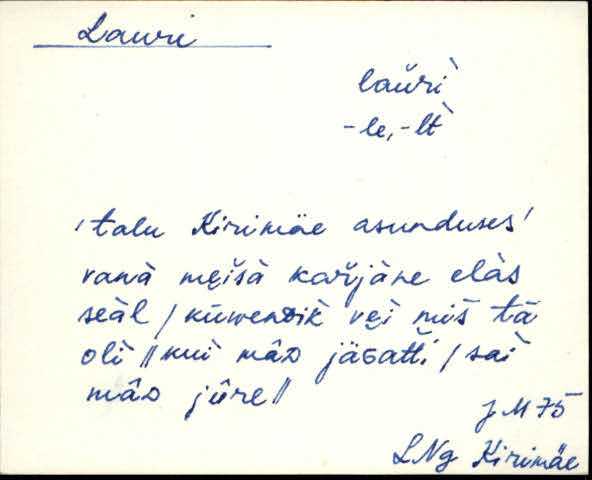 Lauri
laŭri`
-le, -lt`
'talu Kirimäe asunduses'
vanà mẹišà kařjàne elàs
seàl / küwenDìk vẹì mìš tä
oli ‖ kui mâD jäGattì / sai
mâD jûre ‖
JM75
LNg Kirimäe